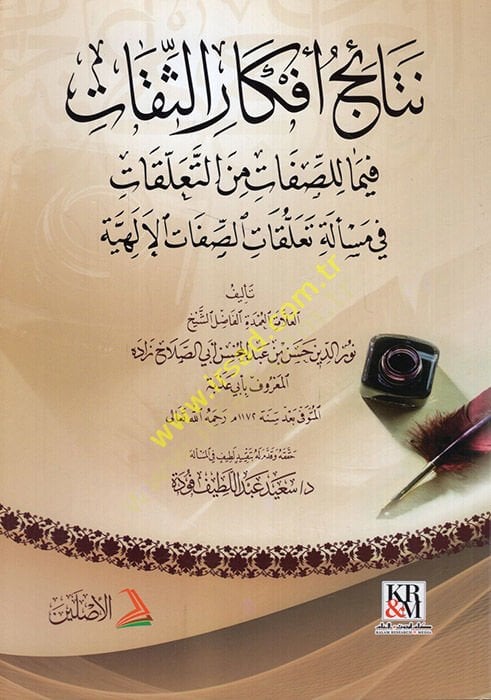 نَتَائِجُ أَفْكَارِ الثِّقَاتِ
فِيمَا لِلصِّفَاتِ مِنَ التَّعَلُّقَاتِ
فِي مَسْأَلَةِ تَعَلُّقَاتِ الصِّفَاتِ الإِلَهِيَّة
تَأليف
العلامة العمدة الفاضل الشيخ
نور الدين حسن بن عبد المحسن أبي الصلاح زاده
المعروف بأبي عذبة
المتوفى بعد سنة ١١٧٢م رحمه الله تعالى
حققه وقدم له بتقييد لطيف في المسألة
د/ سعيد عبد اللطيف فودة
www.irsad.com.tr
KR
&M
KALAM RESEARCH & MEDIA
الأصلين